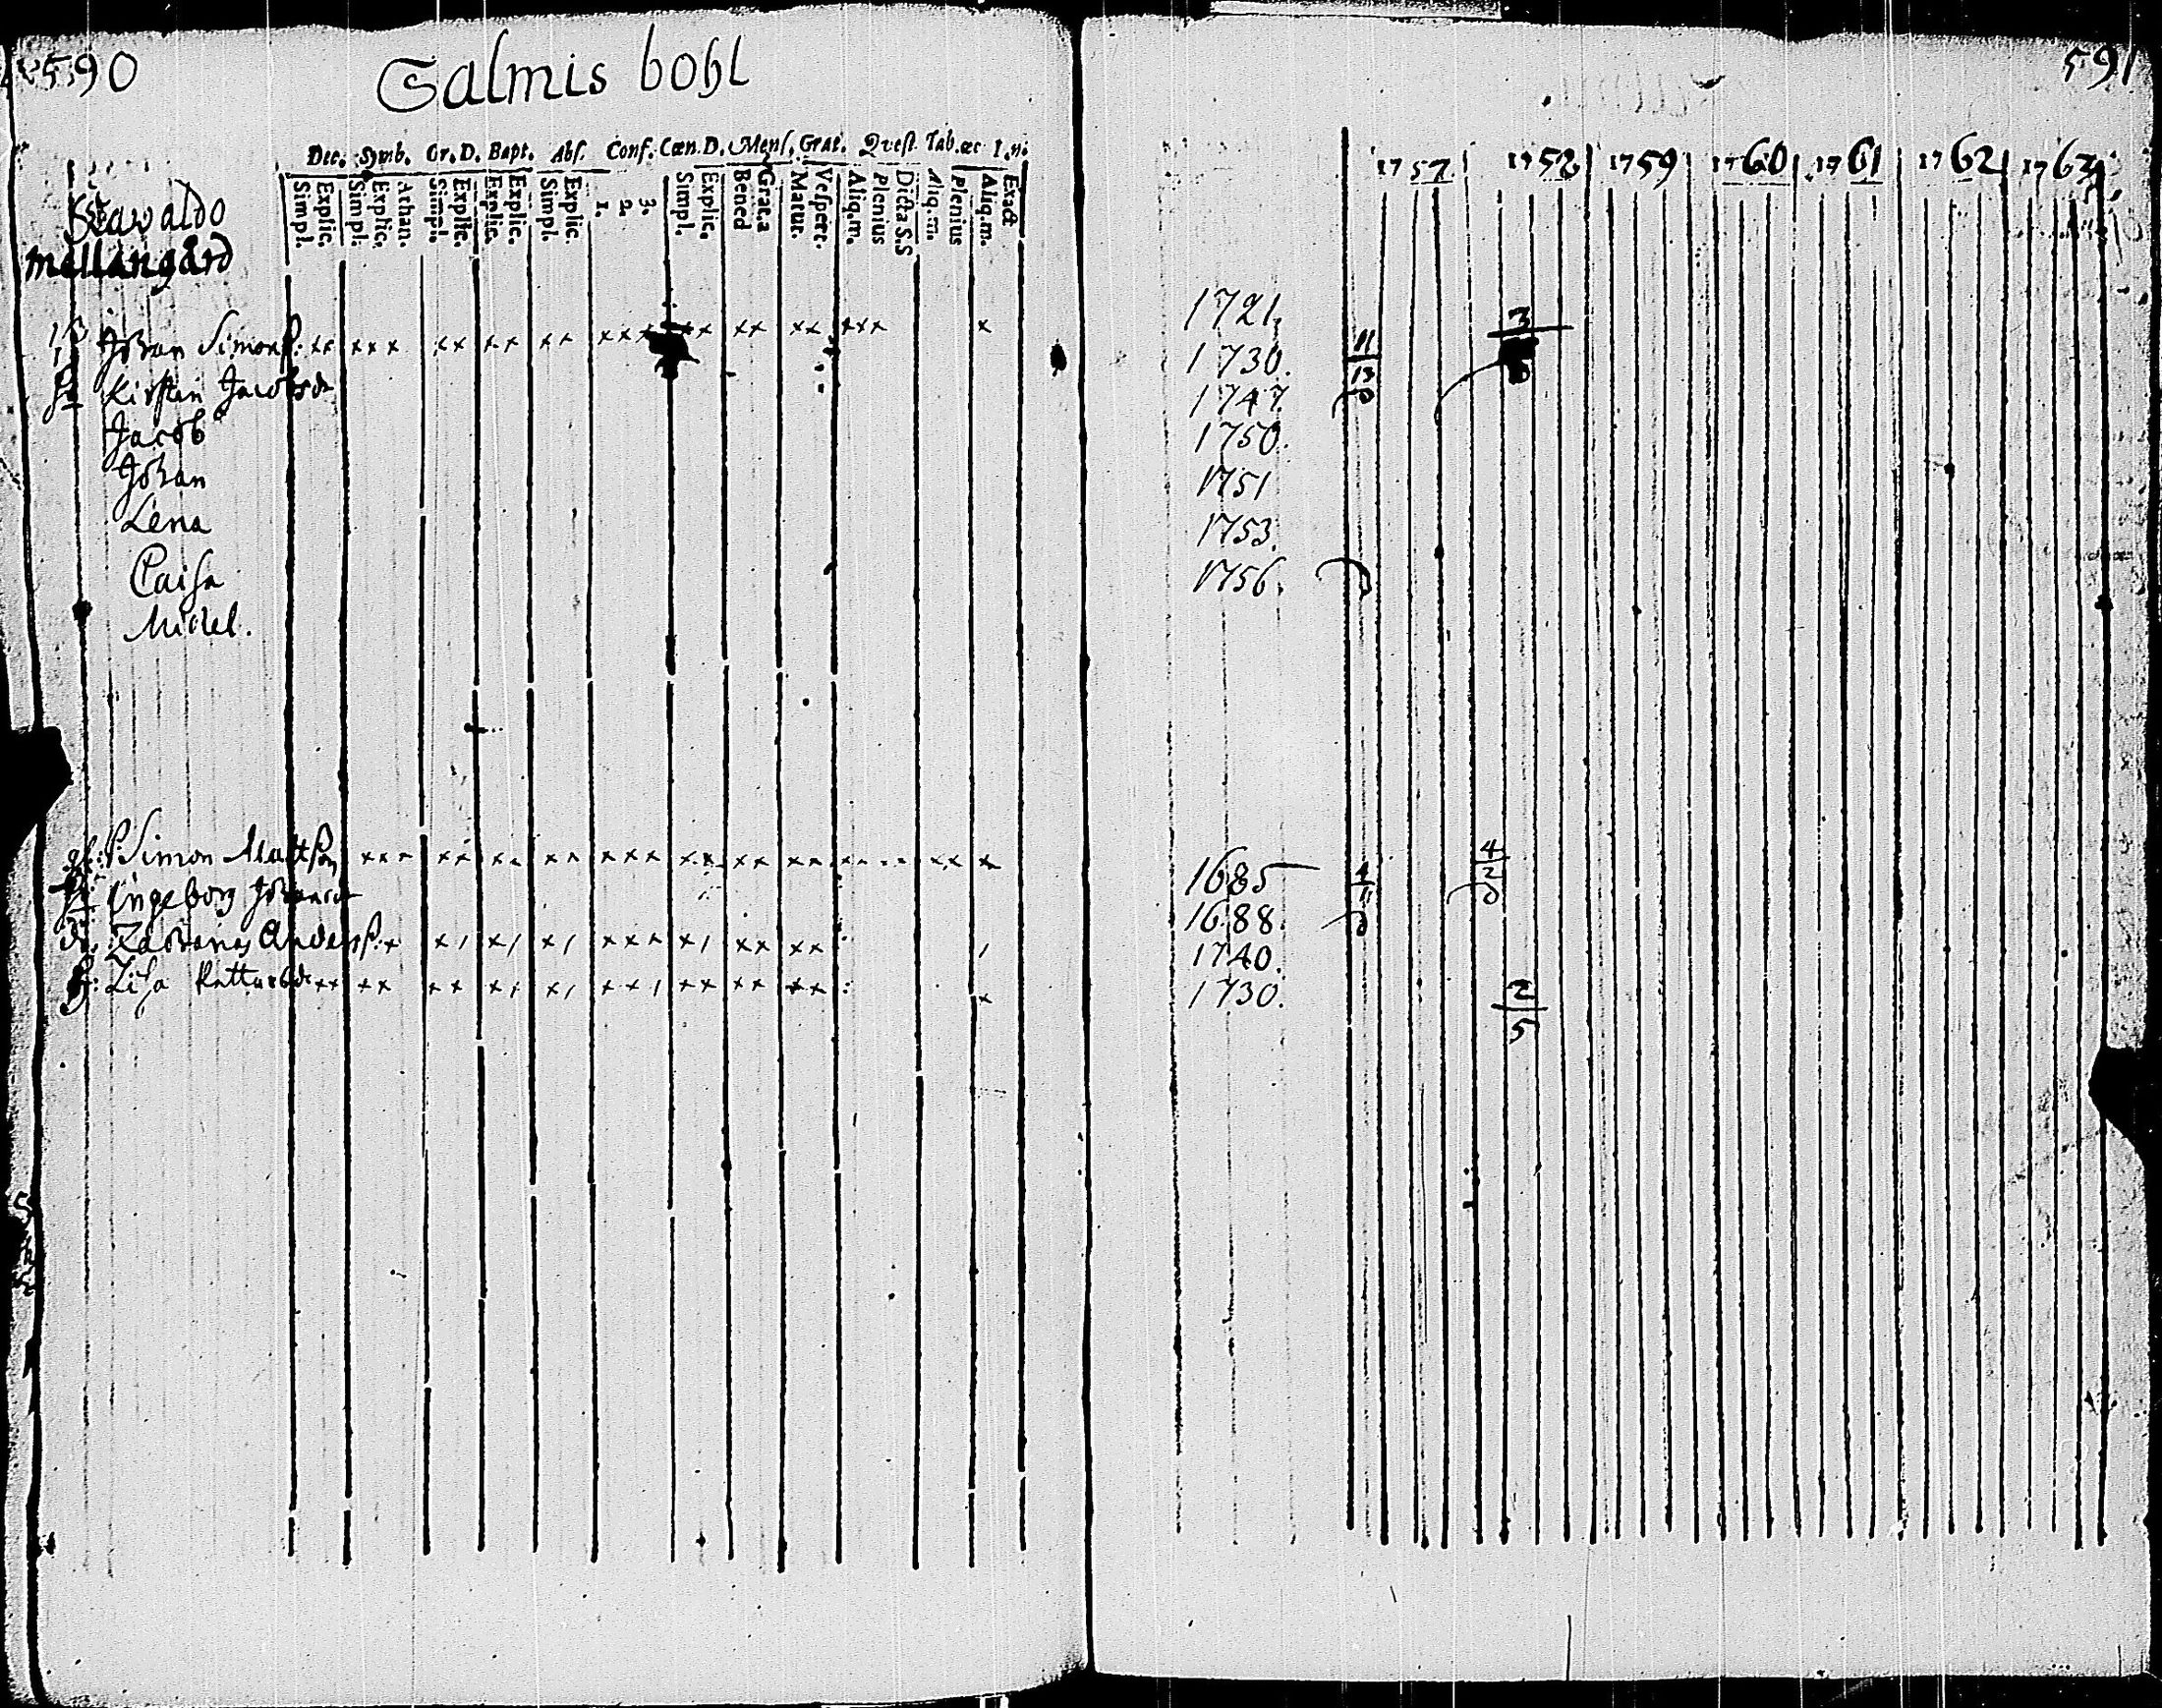 590
Salmis bohl
Dec. Symb. Or. D. Bapt. Abs. Conf. Cœn. D. Mens. Grat. Quest. Tab. œc I. n.
Simpl. Explic. Simpl. Explic. Athan. Simpl. Explic. Explic. Explic. Simpl. Explic. 1. 2. 3. Simpl. Explic. Bened Grat.a Matut. Vespert. Aliq.m. Plenius Dicta S.S Aliq.m. Plenius Aliq.m. Exact
mellangård
Johan Simonss. xx xxx xx xx xx xxx xx xx xx xxx x
Kirstin Jacobsd
Jacob
Johan
Lena
Caisa
Michel.
Simon Mattsson
Ingeborg
Zacharias Anderss.
Lisa
591
1757 1758 1759 1760 1761 1762 1763
1721. 3
1730. 11
13
1747.
1750.
1751
1753.
1756.
1685 4 4
11 2
1688.
1740.
1730. 2
5